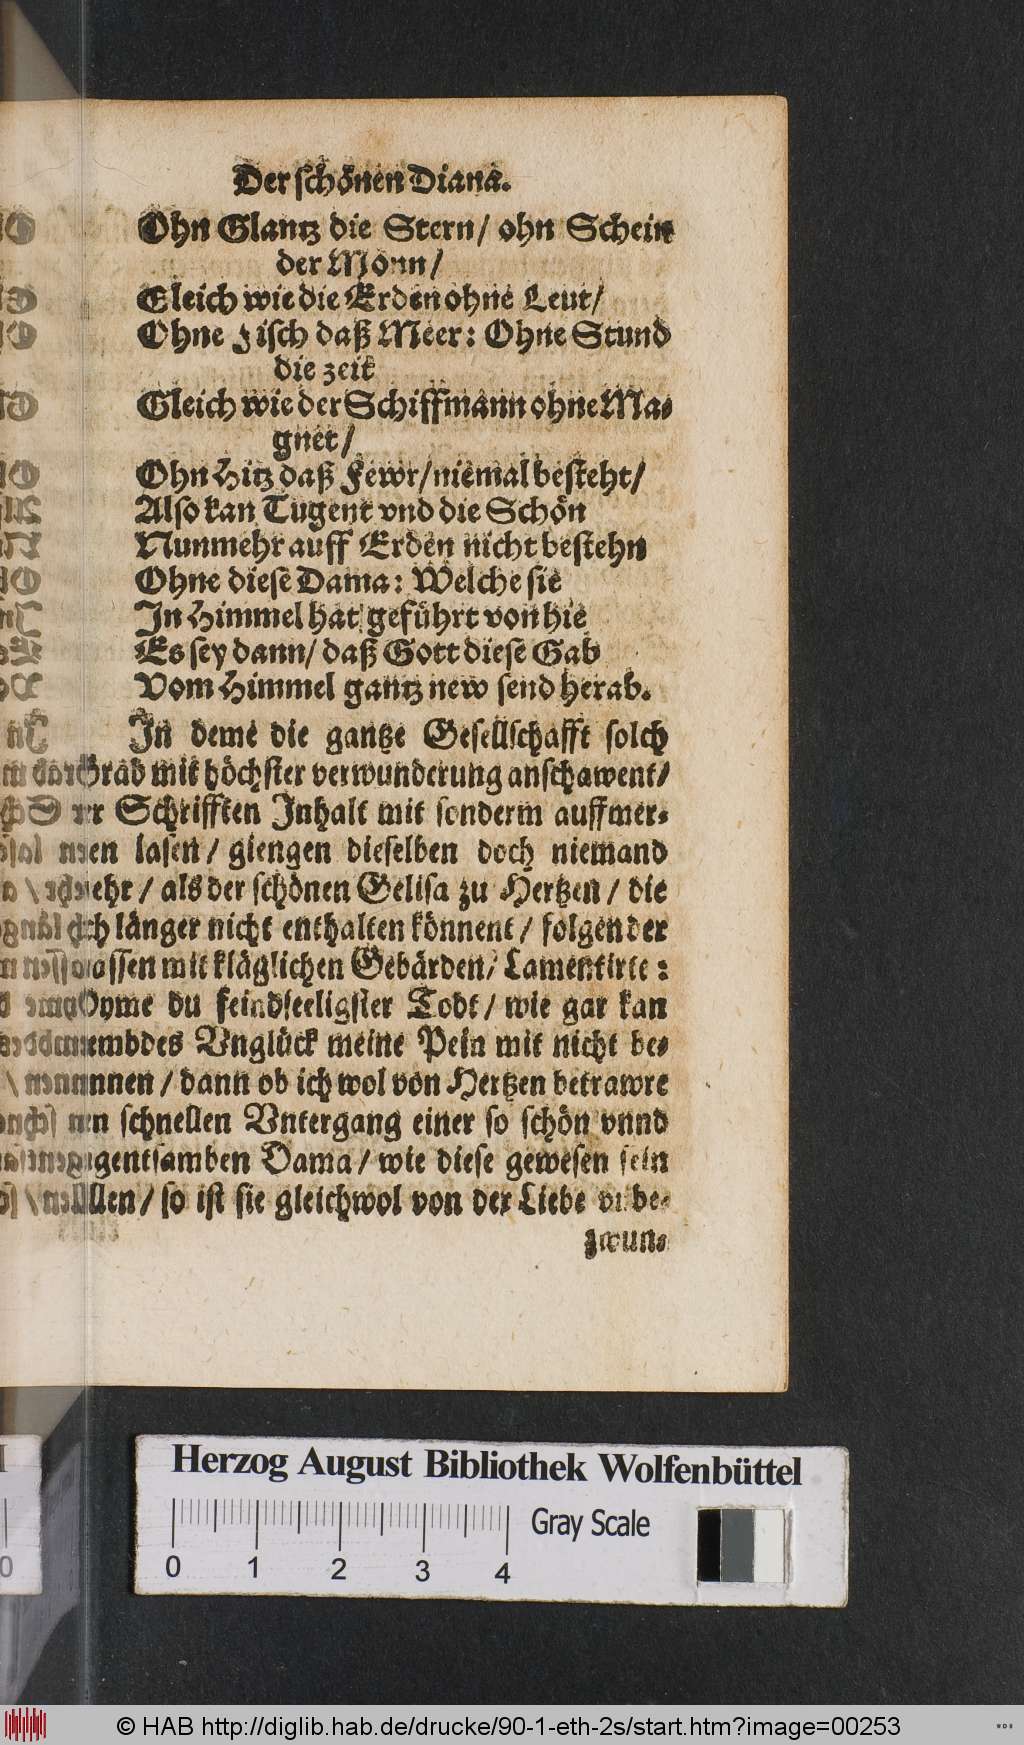 Der schönen Diana.
Ohn Glantz die Stern / ohn Schein
der Monn /
Gleich wie die Erden ohne Leut /
Ohne Fisch daß Meer: Ohne Stund
die zeit
Gleich wie der Schiffmann ohne Ma-
gnet /
Ohn Hitz daß Fewr / niemal besteht /
Also kan Tugent vnd die Schön
Nunmehr auff Erden nicht bestehn
Ohne diese Dama: Welche sie
In Himmel hat geführt von hie
Es sey dann / daß Gott diese Gab
Vom Himmel gantz new send herab.
In deme die gantze Gesellschafft solch
Grab mit höchster verwunderung anschawent /
Schrifften Inhalt mit sonderm auffmer-
lasen / giengen dieselben doch niemand
mehr / als der schönen Gelisa zu Hertzen / die
länger nicht enthalten könnent / folgender
massen mit kläglichen Gebärden / Lamentirte:
O du feindseeligster Todt / wie gar kan
frembdes Vnglück meine Pein mit nicht be-
nennen / dann ob ich wol von Hertzen betrawre
schnellen Vntergang einer so schön vnnd
tugentsamben Dama / wie diese gewesen sein
sollen / so ist sie gleichwol von der Liebe vnbe-
zwun-
Herzog August Bibliothek Wolfenbüttel
Gray Scale
0 1 2 3 4
© HAB http://diglib.hab.de/drucke/90-1-eth-2s/start.htm?image=00253